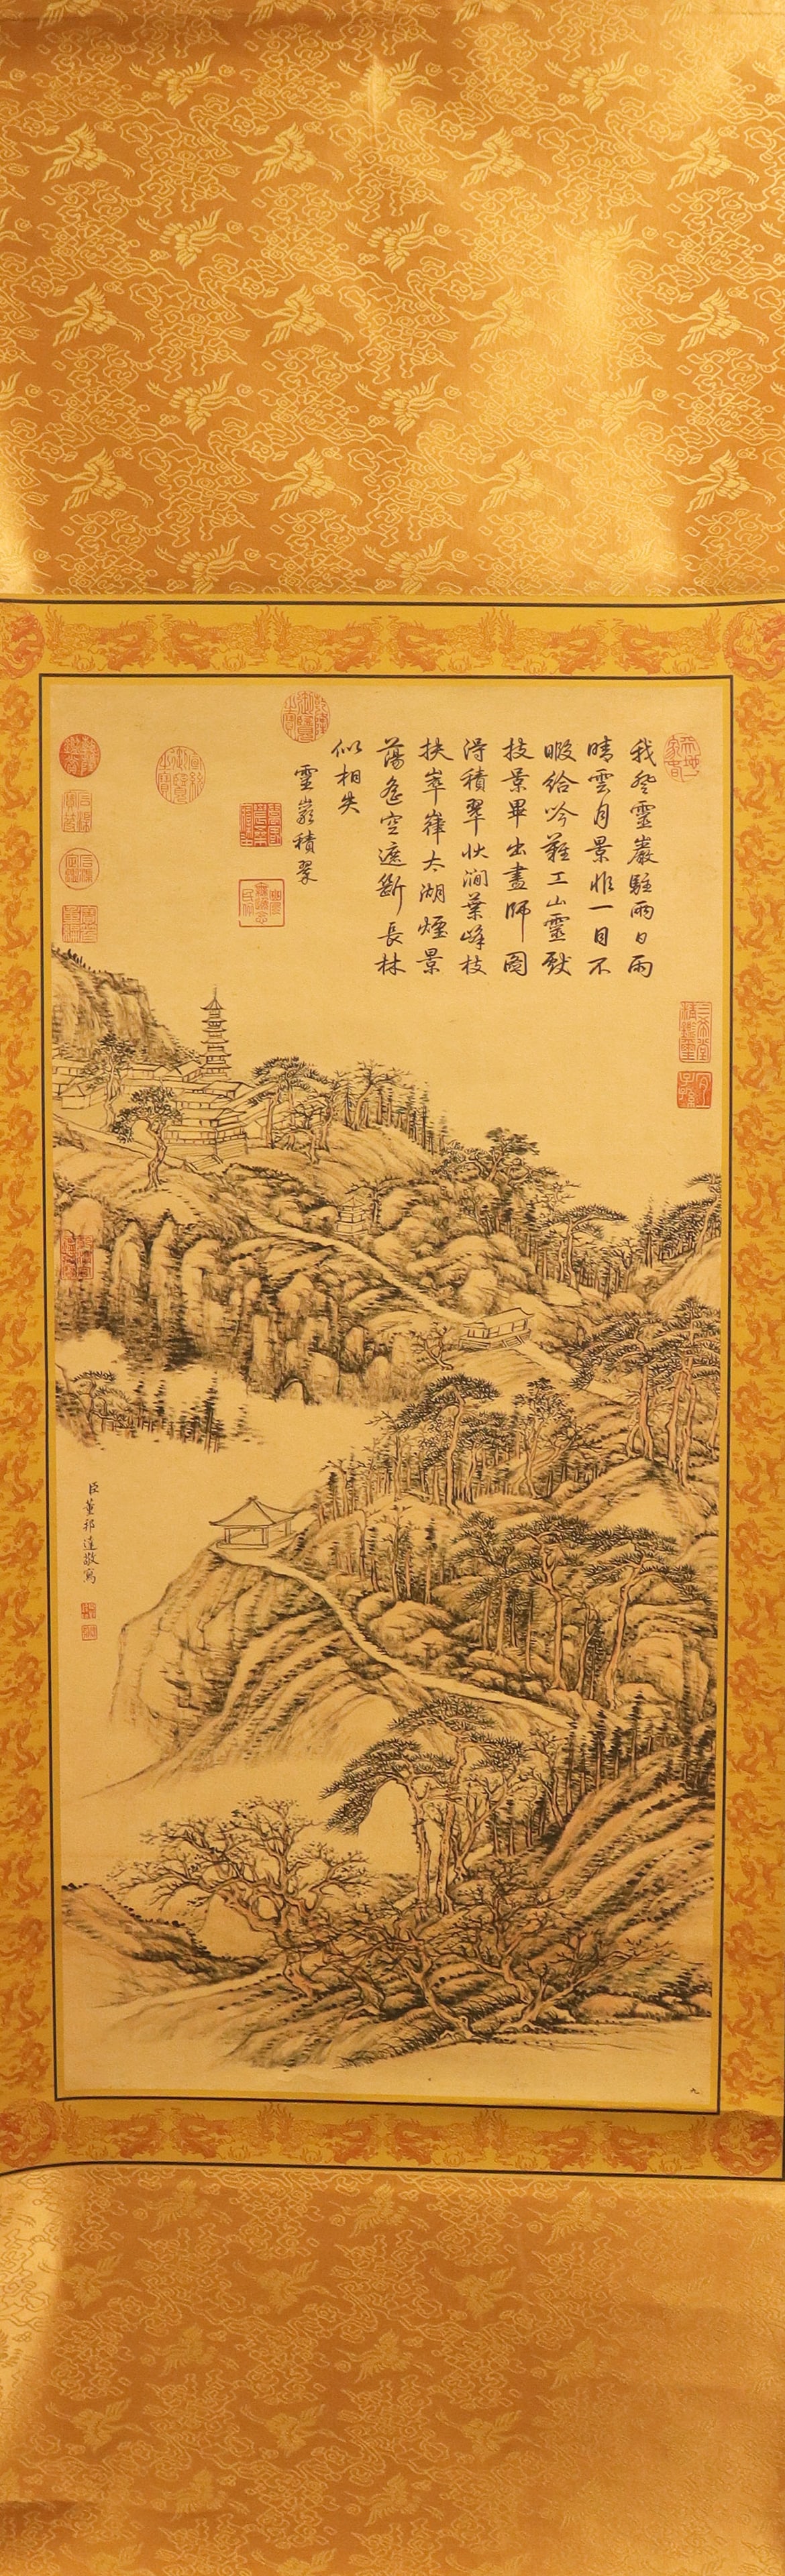 我登靈巖駐兩日雨
晴雲月景非一目不
暇給吟難工山靈獻
技景畢出畫師圖
得積翠狀澗葉峰枝
扶崒嵂太湖煙景
蕩遙空遮斷長林
似相失
靈巖積翠
臣董邦達敬寫
九